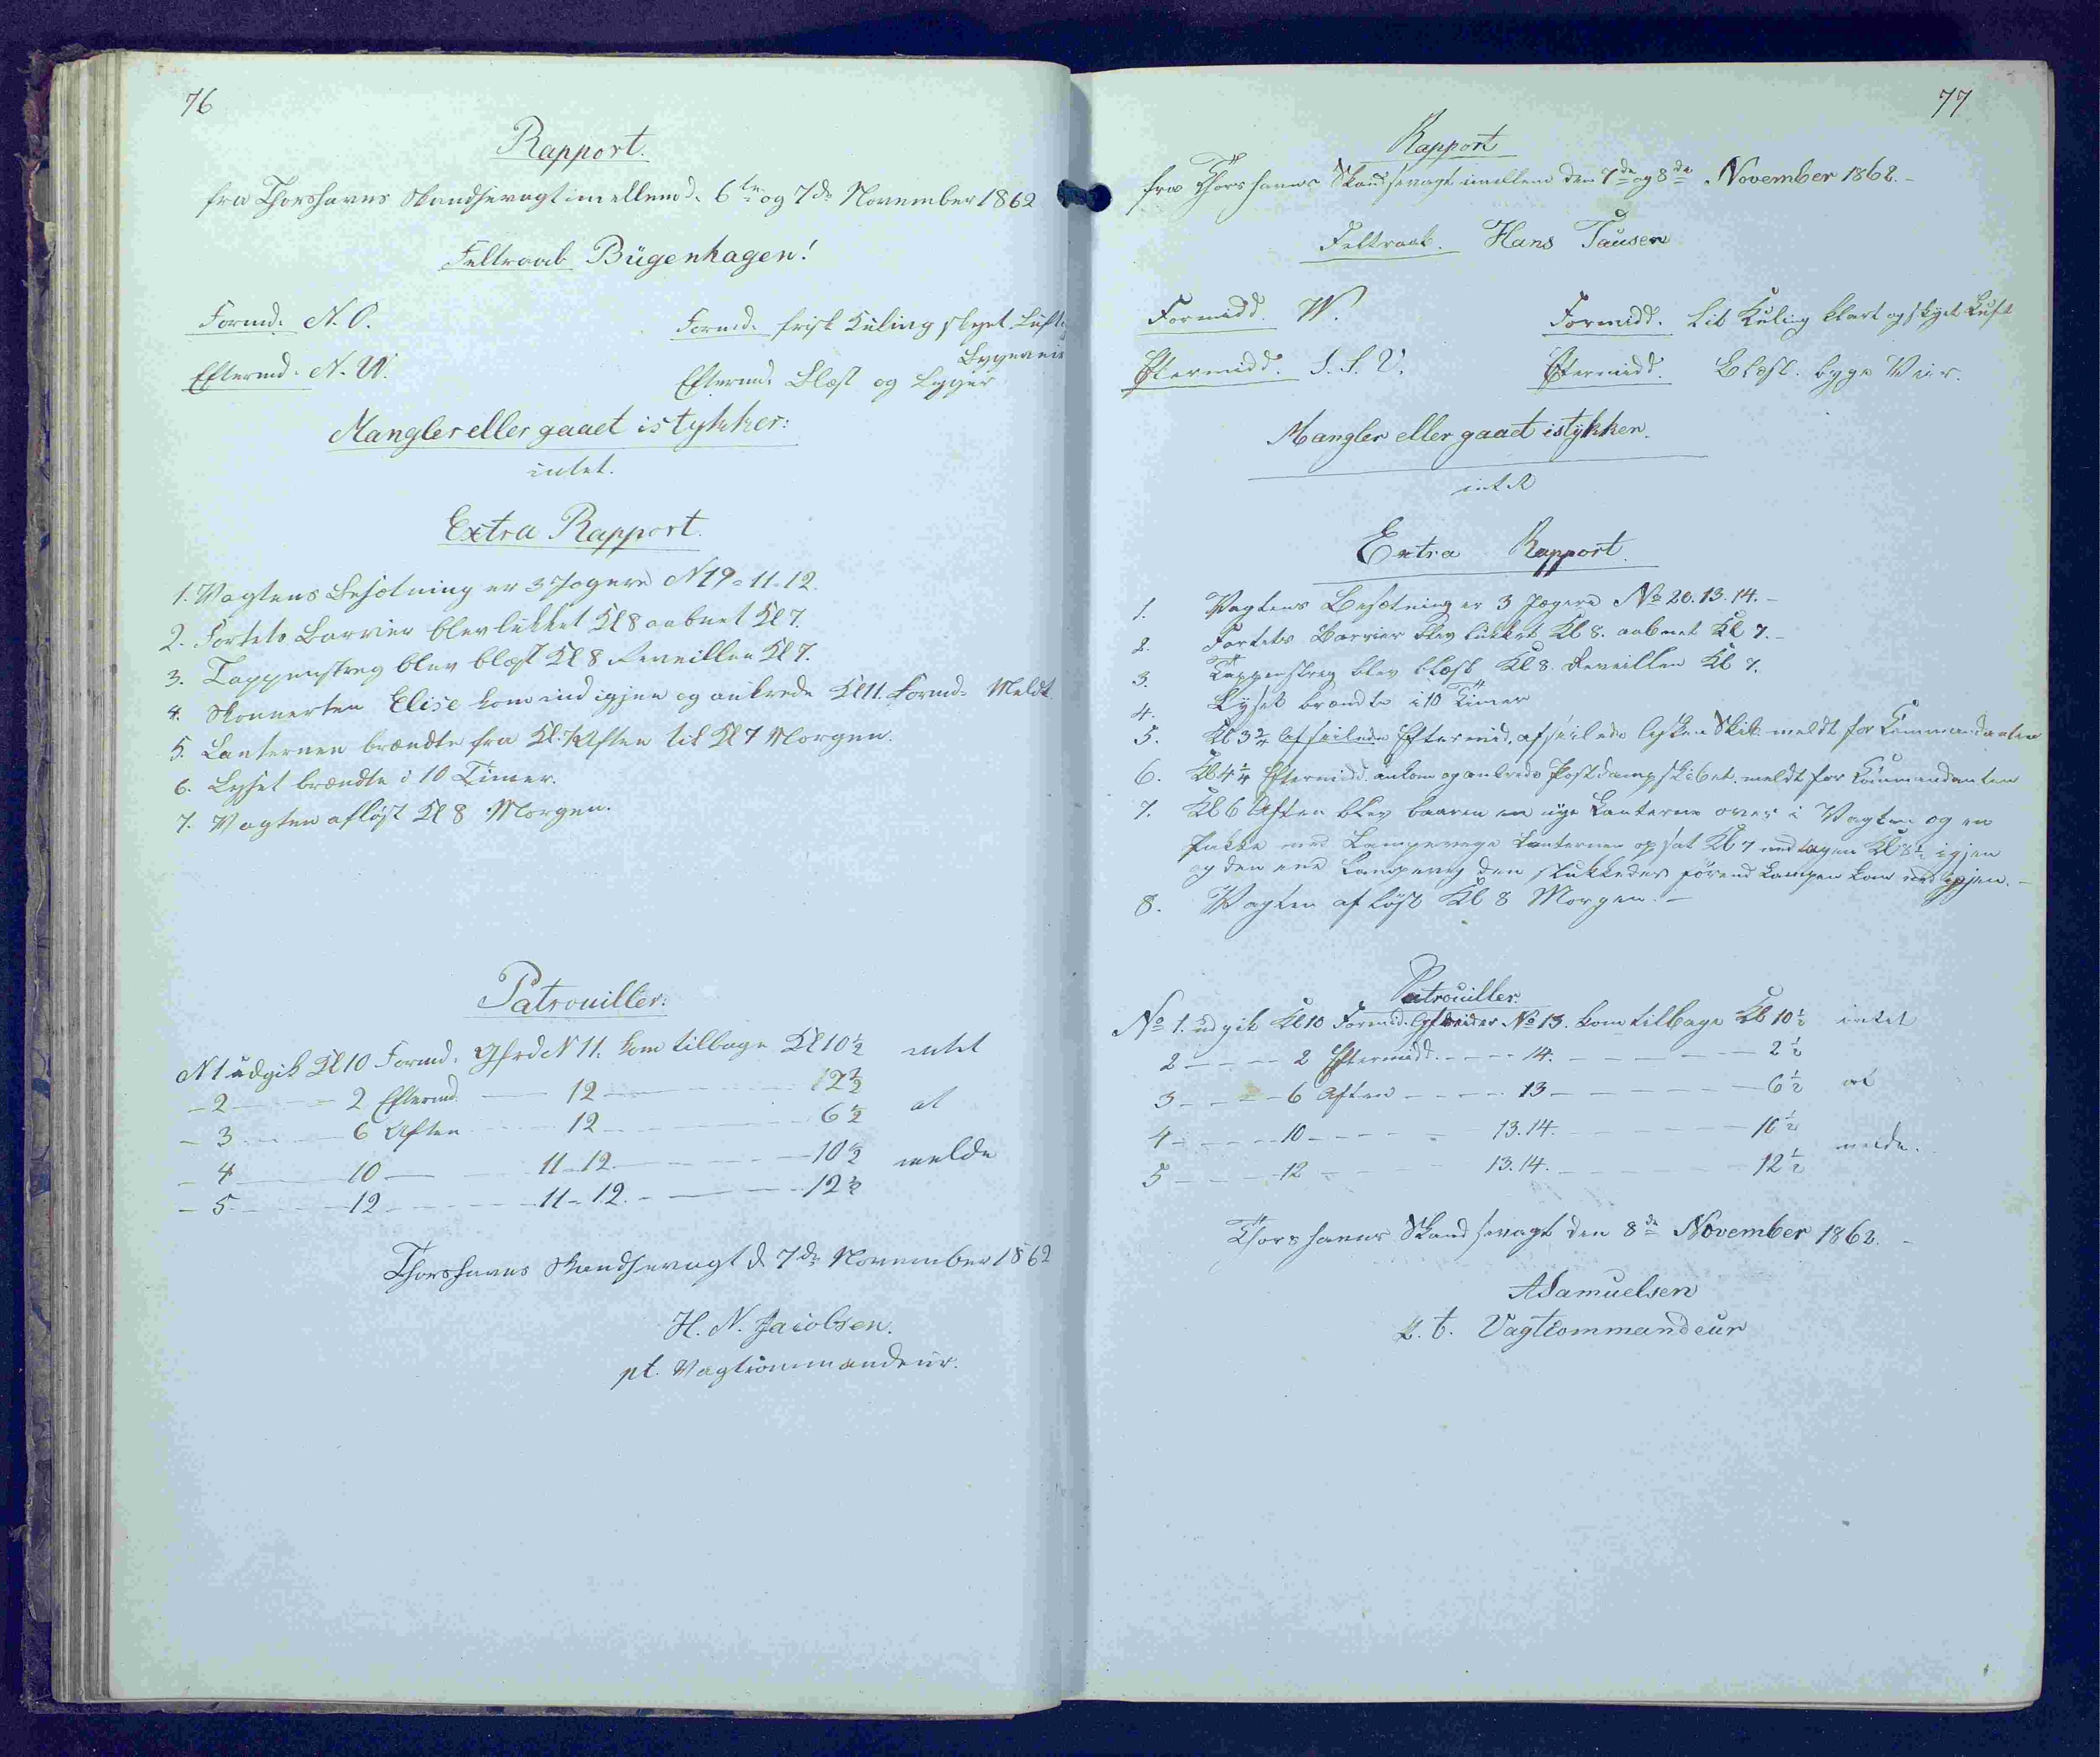 76
Rapport.
fra Thorshavns Skandsevagt imellem d. 6te og 7de November 1862
Feltraab Bügenhagen!
Formd. N.O.
Formd. frisk Kuling skyet Luft
Bygeveir
Eftermd. N.W.
Eftermd. Blæst og Bygger
Mangler eller gaaet istykker:
intet.
Extra Rapport.
1. Vagtens Besætning er 3 Jægere N 19-11-12.
2. Fortets Barrier blev lukket Kl 8 aabnet Kl 7.
3. Tappenstreg blev blæst Kl 8 Reveillen Kl 7.
4. Skonnerten Elise kom ind igjen og ankrede Kl 11. Formd. Meldt
5. Lanternen brændte fra Kl. Aften til Kl 7 Morgen.
6. Lyset brændte i 10 Timer.
7. Vagten afløst Kl 8 Morgen.
Patrouiller:
N 1 udgik Kl 10 Formd. Gfrd N 11. kom tilbage Kl 10½ intet
- 2 — 2 Eftermd. — 12 — 12½
- 3 — 6 Aften — 12 — 6½ at
- 4 — 10 — 11-12 — 10½ melde
- 5 — 12 — 11-12. — 12½
Thorshavns Skandsevagt d 7de November 1862
H. N. Jacobsen.
pt. Vagtcommandeur.
77
Rapport
fra Thorshavns Skandsevagt imellem den 7de og 8de November 1862.-
Feltraab. Hans Tausen
Formidd. W.
Formidd. Lit Kuling klart og skyet Luft
Eftermidd. S.S.V.
Eftermidd. Blæst. byge Veir.
Mangler eller gaaet istykker.
intet
Extra Rapport.
1. Vagtens Besætning er 3 Jægere No 20.13.14.-
2. Fortets Barrier blev lukket Kl 8. aabnet Kl 7.-
3. Tappenstreg blev blæst Kl 8. Reveillen Kl 7.
4. Lyset brændte i 10 Timer
5. Kl 3¾ Afseilede Eftermid, afseilede Skib meldt for Kommandanten
6. Kl 4¼ Eftermidd. ankom og ankrede Postdampskibet. meldt for Kommandanten
7. Kl 6 Aften blev baaren en nye Lanterne over i Vagten og en
Pakke med Lampevæge Lanternen opsat Kl 7 nedtagen Kl 8½ igjen
og den ene Lampevæg den slukkedes førend Lampen kom ned igjen.-
8. Vagten afløst Kl 8 Morgen.-
Patrouiller.
No 1. udgik Kl 10 Formid. Gefreider No 13. kom tilbage Kl 10½ intet
2 ---- 2 Eftermidd. ---- 14. ---- 2½
3 ---- 6 Aften ---- 13 ---- 6½ at
4 ---- 10 ---- 13.14. ---- 10½
5 ---- 12 ---- 13.14. ---- 12½ melde.
Thorshavns Skandsevagt den 8de November 1862.-
ASamuelsen
p.t. Vagtcommandeur